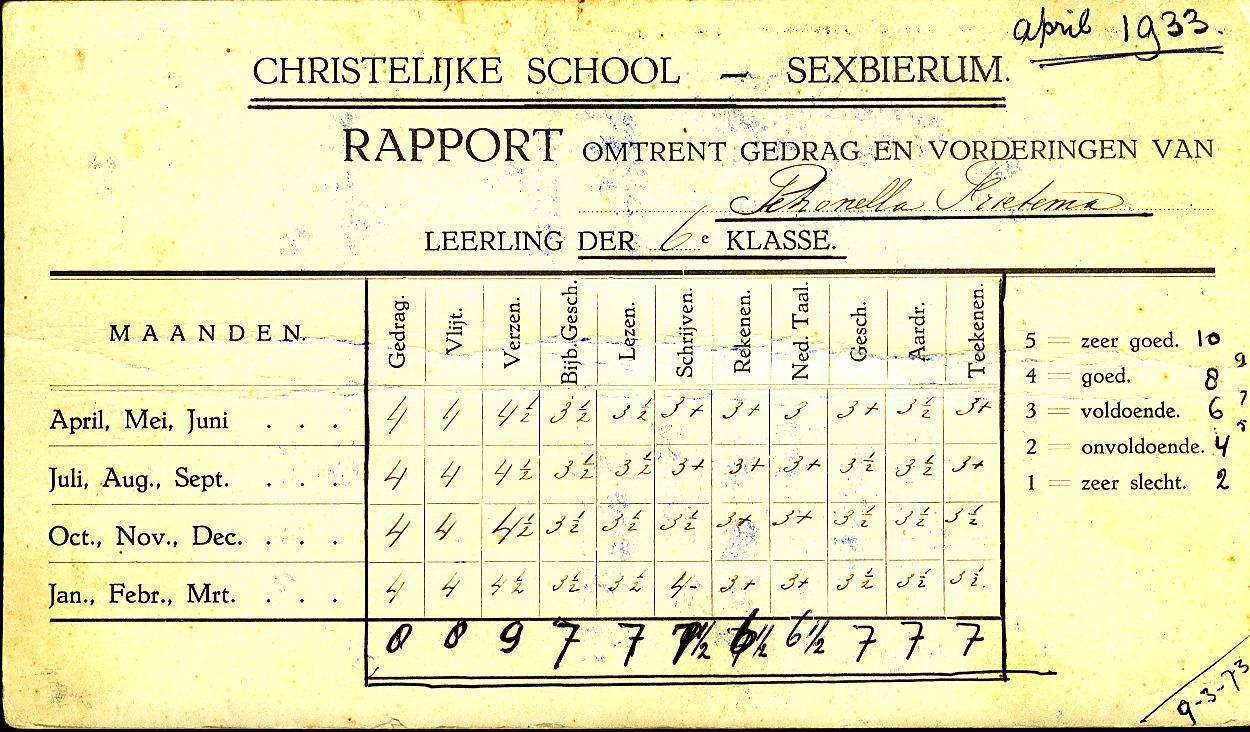 april 1933.
CHRISTELIJKE SCHOOL — SEXBIERUM.
RAPPORT OMTRENT GEDRAG EN VORDERINGEN VAN
Petronella Frietema
LEERLING DER 6e KLASSE.
MAANDEN. Gedrag. Vlijt. Verzen. Bijb. Gesch. Lezen. Schrijven. Rekenen. Ned. Taal. Gesch. Aardr. Teekenen.
April, Mei, Juni . . . 4 4 4½ 3½ 3½ 3+ 3+ 3 3+ 3½ 3+
Juli, Aug., Sept. . . . 4 4 4½ 3½ 3½ 3+ 3+ 3+ 3½ 3½ 3+
Oct., Nov., Dec. . . . 4 4 4½ 3½ 3½ 3½ 3+ 3+ 3½ 3½ 3½
Jan., Febr., Mrt. . . . 4 4 4½ 3½ 3½ 4- 3+ 3+ 3½ 3½ 3½.
8 8 9 7 7 7½ 6½ 6½ 7 7 7
5 = zeer goed. 10
9
4 = goed. 8
7
3 = voldoende. 6
5
2 = onvoldoende. 4
1 = zeer slecht. 2
9-3-73